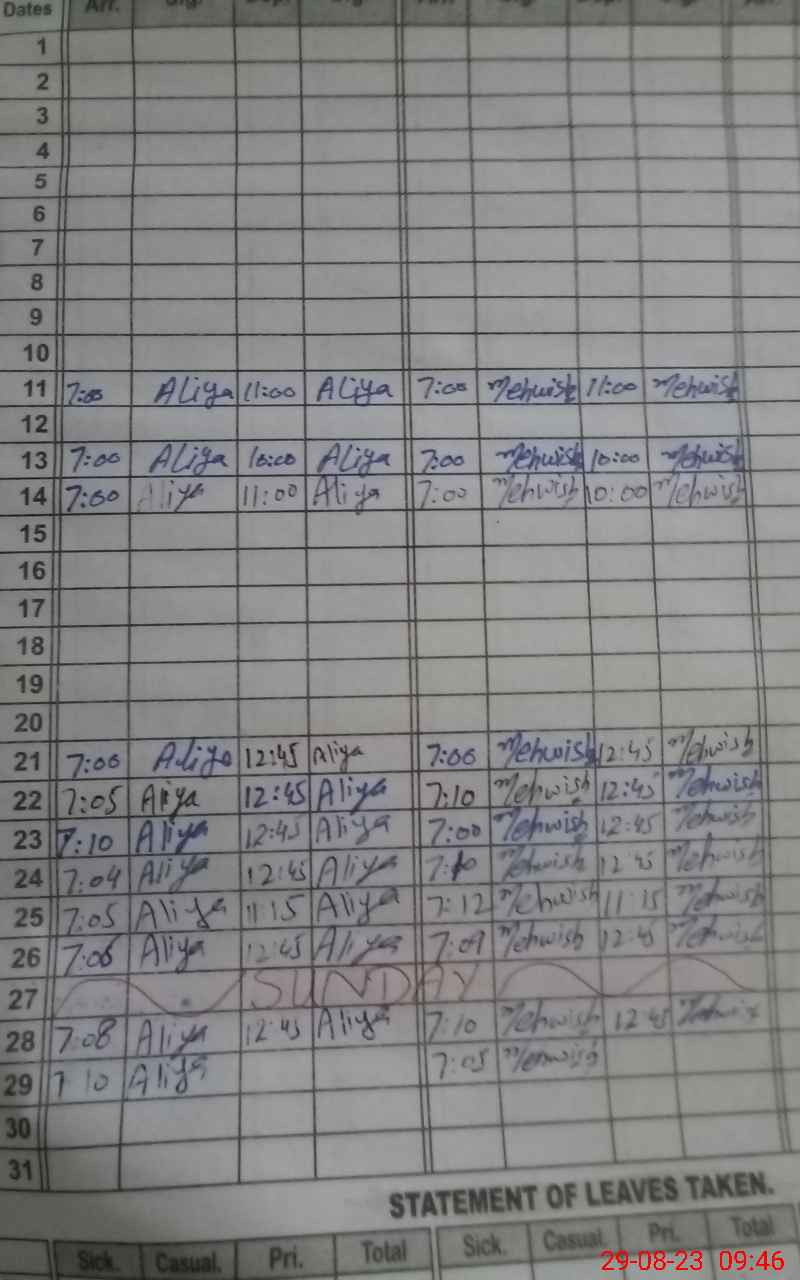 Dates Arr. Sig. Dep. Sig.
1
2
3
4
5
6
7
8
9
10
11 7:00 Aliya 11:00 Aliya 7:00 Mehwish 11:00 Mehwish
12
13 7:00 Aliya 10:00 Aliya 7:00 Mehwish 10:00 Mehwish
14 7:00 Aliya 11:00 Aliya 7:00 Mehwish 10:00 Mehwish
15
16
17
18
19
20
21 7:00 Aliya 12:45 Aliya 7:00 Mehwish 12:45 Mehwish
22 7:05 Aliya 12:45 Aliya 7:10 Mehwish 12:45 Mehwish
23 7:10 Aliya 12:45 Aliya 7:00 Mehwish 12:45 Mehwish
24 7:04 Aliya 12:45 Aliya 7:10 Mehwish 12:45 Mehwish
25 7:05 Aliya 11:15 Aliya 7:12 Mehwish 11:15 Mehwish
26 7:06 Aliya 12:45 Aliya 7:09 Mehwish 12:45 Mehwish
27 SUNDAY
28 7:08 Aliya 12:45 Aliya 7:10 Mehwish 12:45 Mehwish
29 7 10 Aliya 7:05 Mehwish
30
31
STATEMENT OF LEAVES TAKEN.
Sick. Casual. Pri. Total Sick. Casual. Pri. Total
29-08-23 09:46